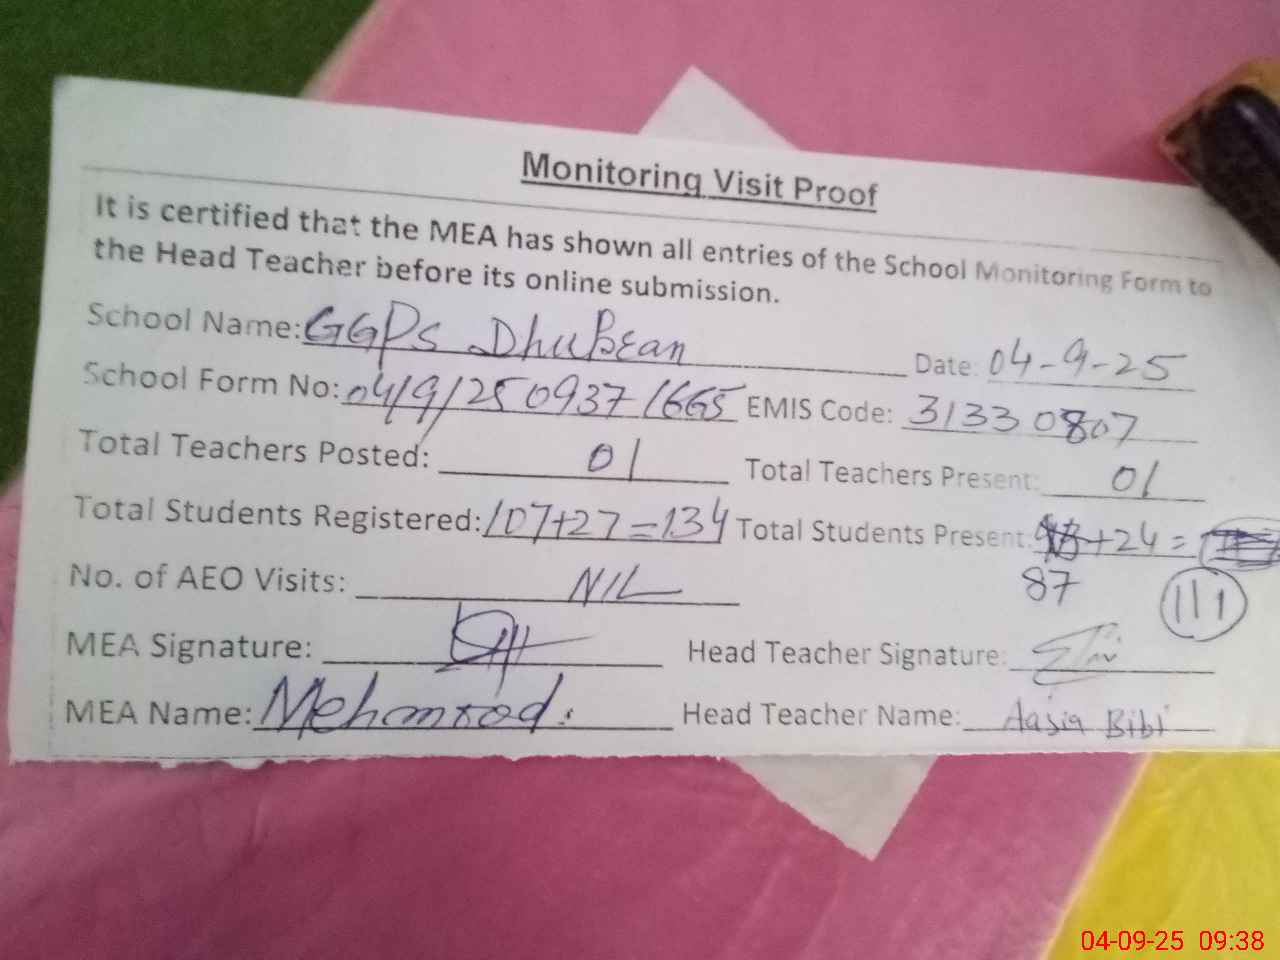 Monitoring Visit Proof
It is certified that the MEA has shown all entries of the School Monitoring Form to
the Head Teacher before its online submission.
School Name: GGPS Dhupean Date: 04-9-25
School Form No: 04/9/25 0937 1665 EMIS Code: 31330807
Total Teachers Posted: 01 Total Teachers Present: 01
Total Students Registered: 107+27=134 Total Students Present: +24=
87 111
No. of AEO Visits: NIL
MEA Signature: Head Teacher Signature:
MEA Name: Head Teacher Name: Aasia Bibi
04-09-25 09:38